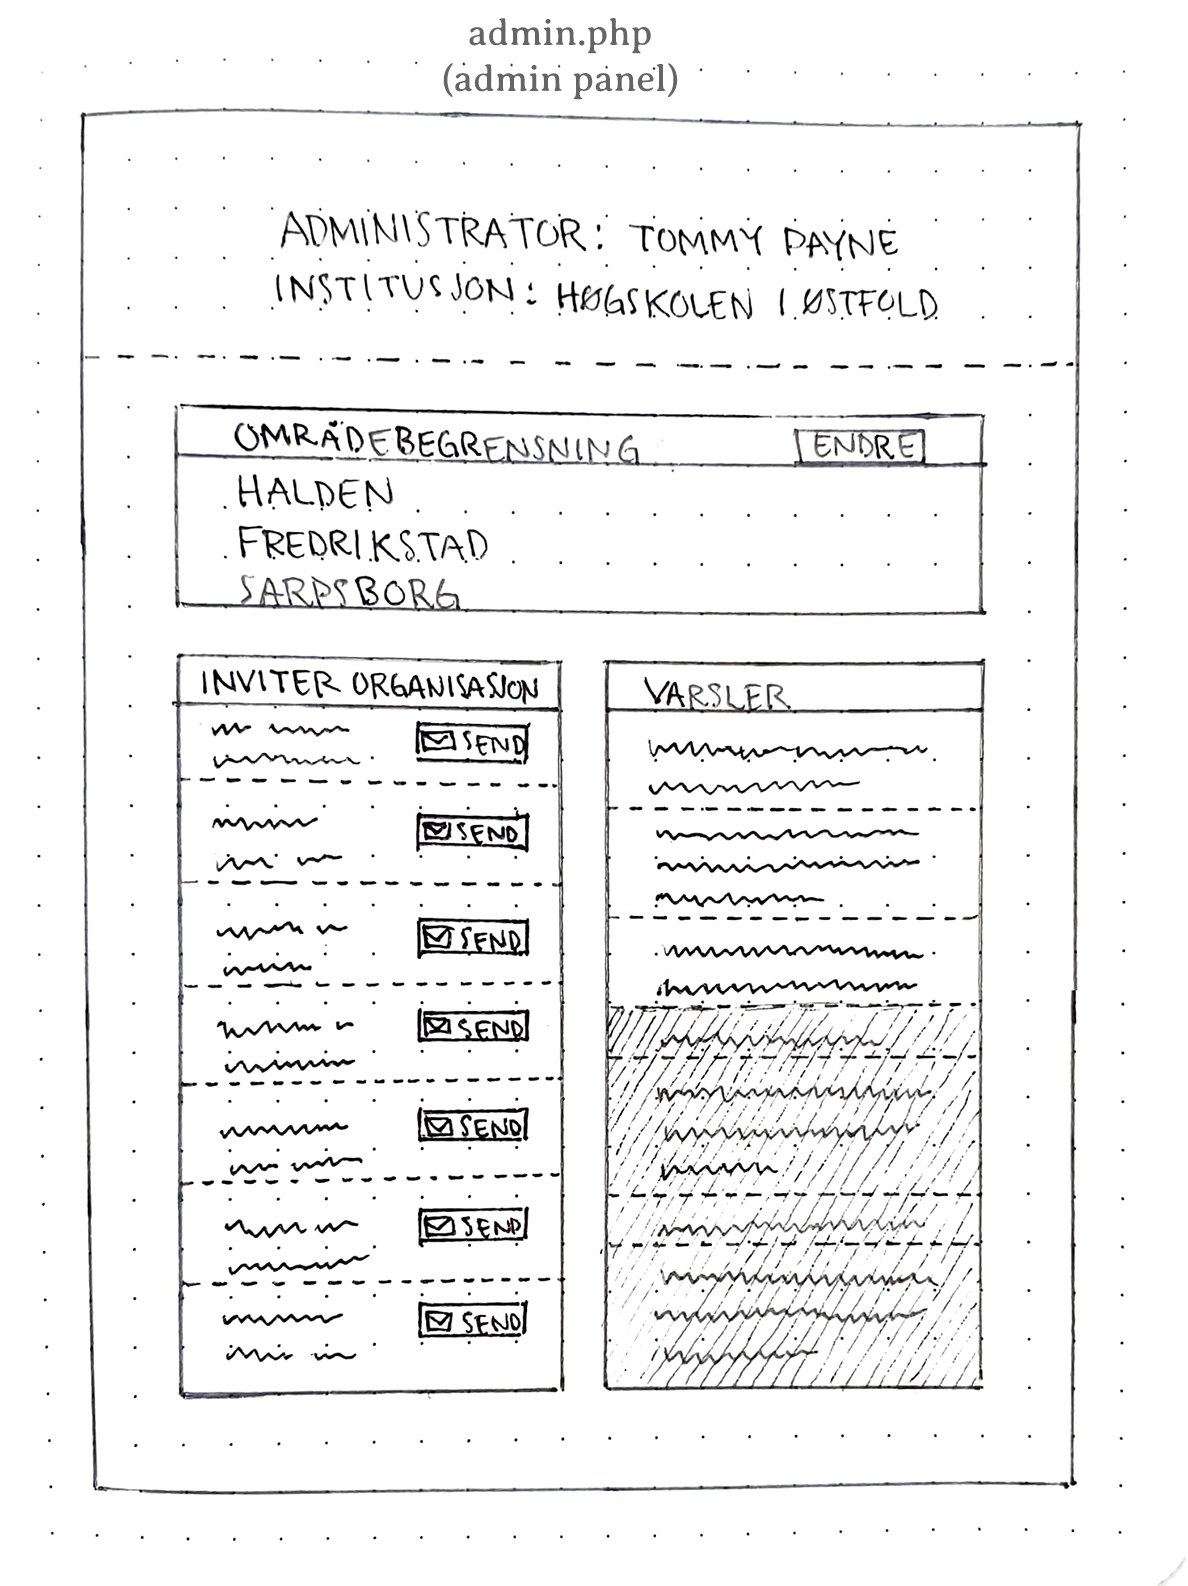 admin.php
(admin panel)
ADMINISTRATOR: TOMMY PAYNE
INSTITUSJON: HØGSKOLEN I ØSTFOLD
OMRÅDEBEGRENSNING
ENDRE
HALDEN
FREDRIKSTAD
SARPSBORG
INVITER ORGANISASJON
SEND
SEND
SEND
SEND
SEND
SEND
SEND
VARSLER